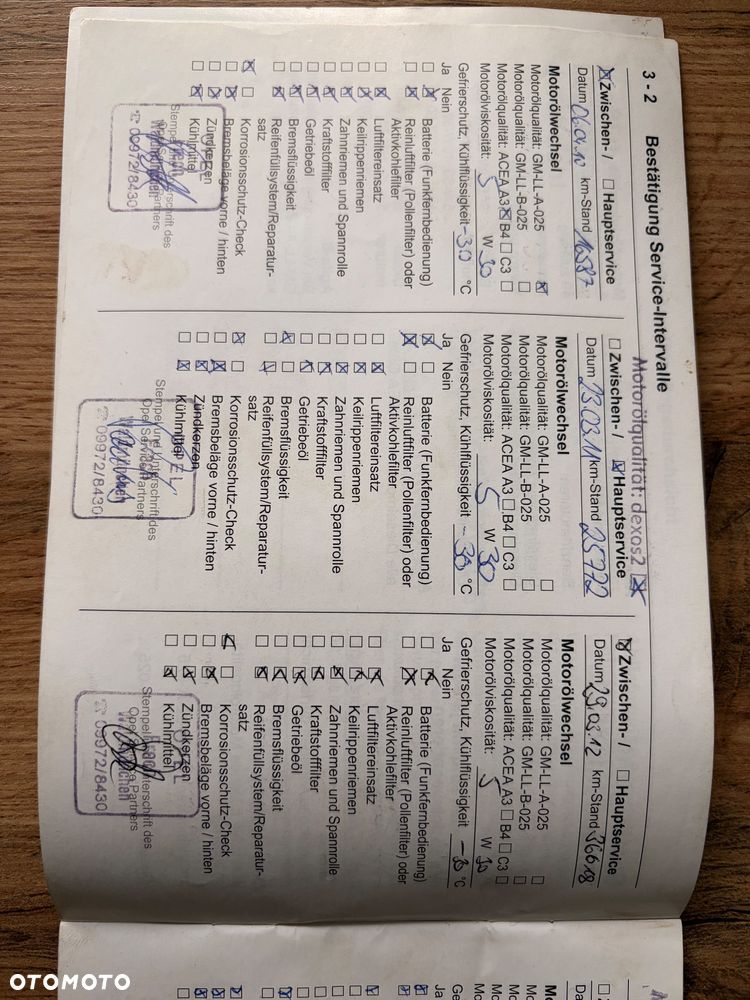 3 - 2 Bestätigung Service-Intervalle
Motorölqualität: dexos2 ☒
☒ Zwischen- / ☐ Hauptservice
km-Stand 16587
Datum
Motorölwechsel
Motorölqualität: GM-LL-A-025 ☒
Motorölqualität: GM-LL-B-025 ☐
Motorölqualität: ACEA A3 ☒ B4 ☐ C3 ☐
Motorölviskosität: 5 W 30
Gefrierschutz, Kühlflüssigkeit -30 °C
Ja Nein
Batterie (Funkfernbedienung)
Reinluftfilter (Pollenfilter) oder
Aktivkohlefilter
Luftfiltereinsatz
Keilrippenriemen
Zahnriemen und Spannrolle
Kraftstofffilter
Getriebeöl
Bremsflüssigkeit
Reifenfüllsystem/Reparatur-
satz
Korrosionsschutz-Check
Bremsbeläge vorne / hinten
Zündkerzen
Kühlmittel
☎ 09972/8430
☐ Zwischen- / ☒ Hauptservice
Datum 23.03.11 km-Stand 25772
Motorölwechsel
Motorölqualität: GM-LL-A-025 ☐
Motorölqualität: GM-LL-B-025 ☐
Motorölqualität: ACEA A3 ☐ B4 ☐ C3 ☐
Motorölviskosität: 5 W 30
Gefrierschutz, Kühlflüssigkeit -30 °C
Ja Nein
Batterie (Funkfernbedienung)
Reinluftfilter (Pollenfilter) oder
Aktivkohlefilter
Luftfiltereinsatz
Keilrippenriemen
Zahnriemen und Spannrolle
Kraftstofffilter
Getriebeöl
Bremsflüssigkeit
Reifenfüllsystem/Reparatur-
satz
Korrosionsschutz-Check
Bremsbeläge vorne / hinten
Zündkerzen
Kühlmittel
Stempel und Unterschrift des
Opel Service Partners
☎ 09972/8430
☒ Zwischen- / ☐ Hauptservice
Datum 29.03.12 km-Stand 36618
Motorölwechsel
Motorölqualität: GM-LL-A-025 ☐
Motorölqualität: GM-LL-B-025 ☐
Motorölqualität: ACEA A3 ☐ B4 ☐ C3 ☐
Motorölviskosität: 5 W 30
Gefrierschutz, Kühlflüssigkeit -30 °C
Ja Nein
Batterie (Funkfernbedienung)
Reinluftfilter (Pollenfilter) oder
Aktivkohlefilter
Luftfiltereinsatz
Keilrippenriemen
Zahnriemen und Spannrolle
Kraftstofffilter
Getriebeöl
Bremsflüssigkeit
Reifenfüllsystem/Reparatur-
satz
Korrosionsschutz-Check
Bremsbeläge vorne / hinten
Zündkerzen
Kühlmittel
☎ 09972/8430
OTOMOTO